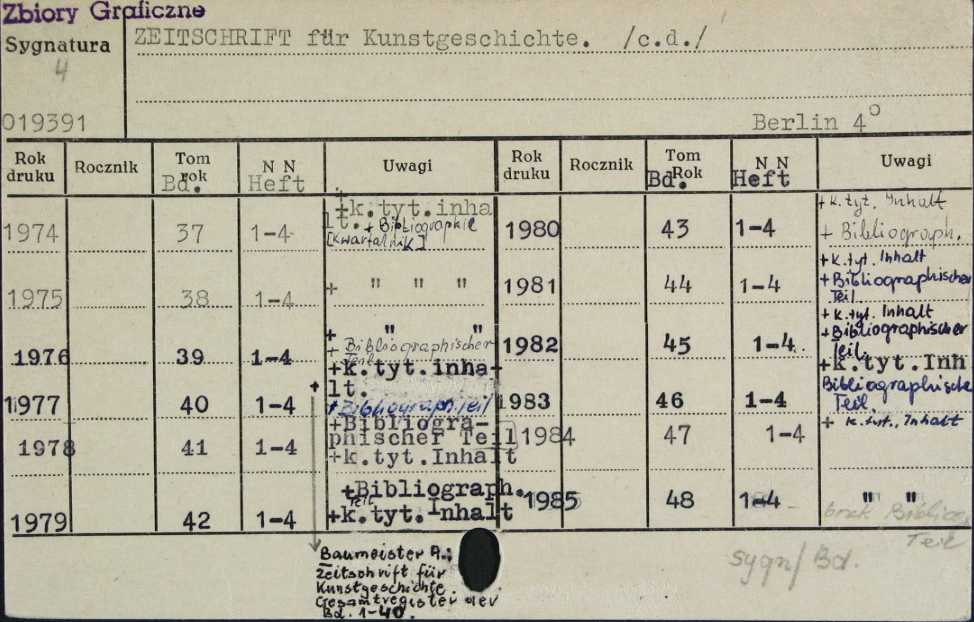 Zbiory Graficzne
Sygnatura
4
019391
ZEITSCHRIFT für Kunstgeschichte. /c.d./
Berlin 4°
Rok druku Rocznik Tom rok Bd. N N Heft Uwagi Rok druku Rocznik Tom Rok Bd. N N Heft Uwagi
1974 37 1-4 +k.tyt.inha
lt. + Bibliographie
[kwartalnik]
1975 38 1-4 + " " "
1976 39 1-4 + " "
+ Bibliographischer
Teil
1977 40 1-4 +k.tyt.inha-
lt.
+ Bibliograph. Teil
1978 41 1-4 +Bibliogra-
phischer Teil
+k.tyt.Inhalt
1979 42 1-4 +Bibliograph.
Teil
+k.tyt.Inhalt
1980 43 1-4 + k. tyt. Inhalt
+ Bibliograph.
1981 44 1-4 + k. tyt. Inhalt
+ Bibliographischer
Teil
1982 45 1-4. + k. tyt. Inhalt
+ Bibliographischer
Teil.
1983 46 1-4 +k.tyt.Inh
Bibliographische
Teil.
1984 47 1-4 + k. tyt. Inhalt
1985 48 1-4 " "
brak Bibliogr.
Teil
+
Baumeister A.:
Zeitschrift für
Kunstgeschichte.
Gesamtregister der
Bd. 1-40.
sygn/ Bd.